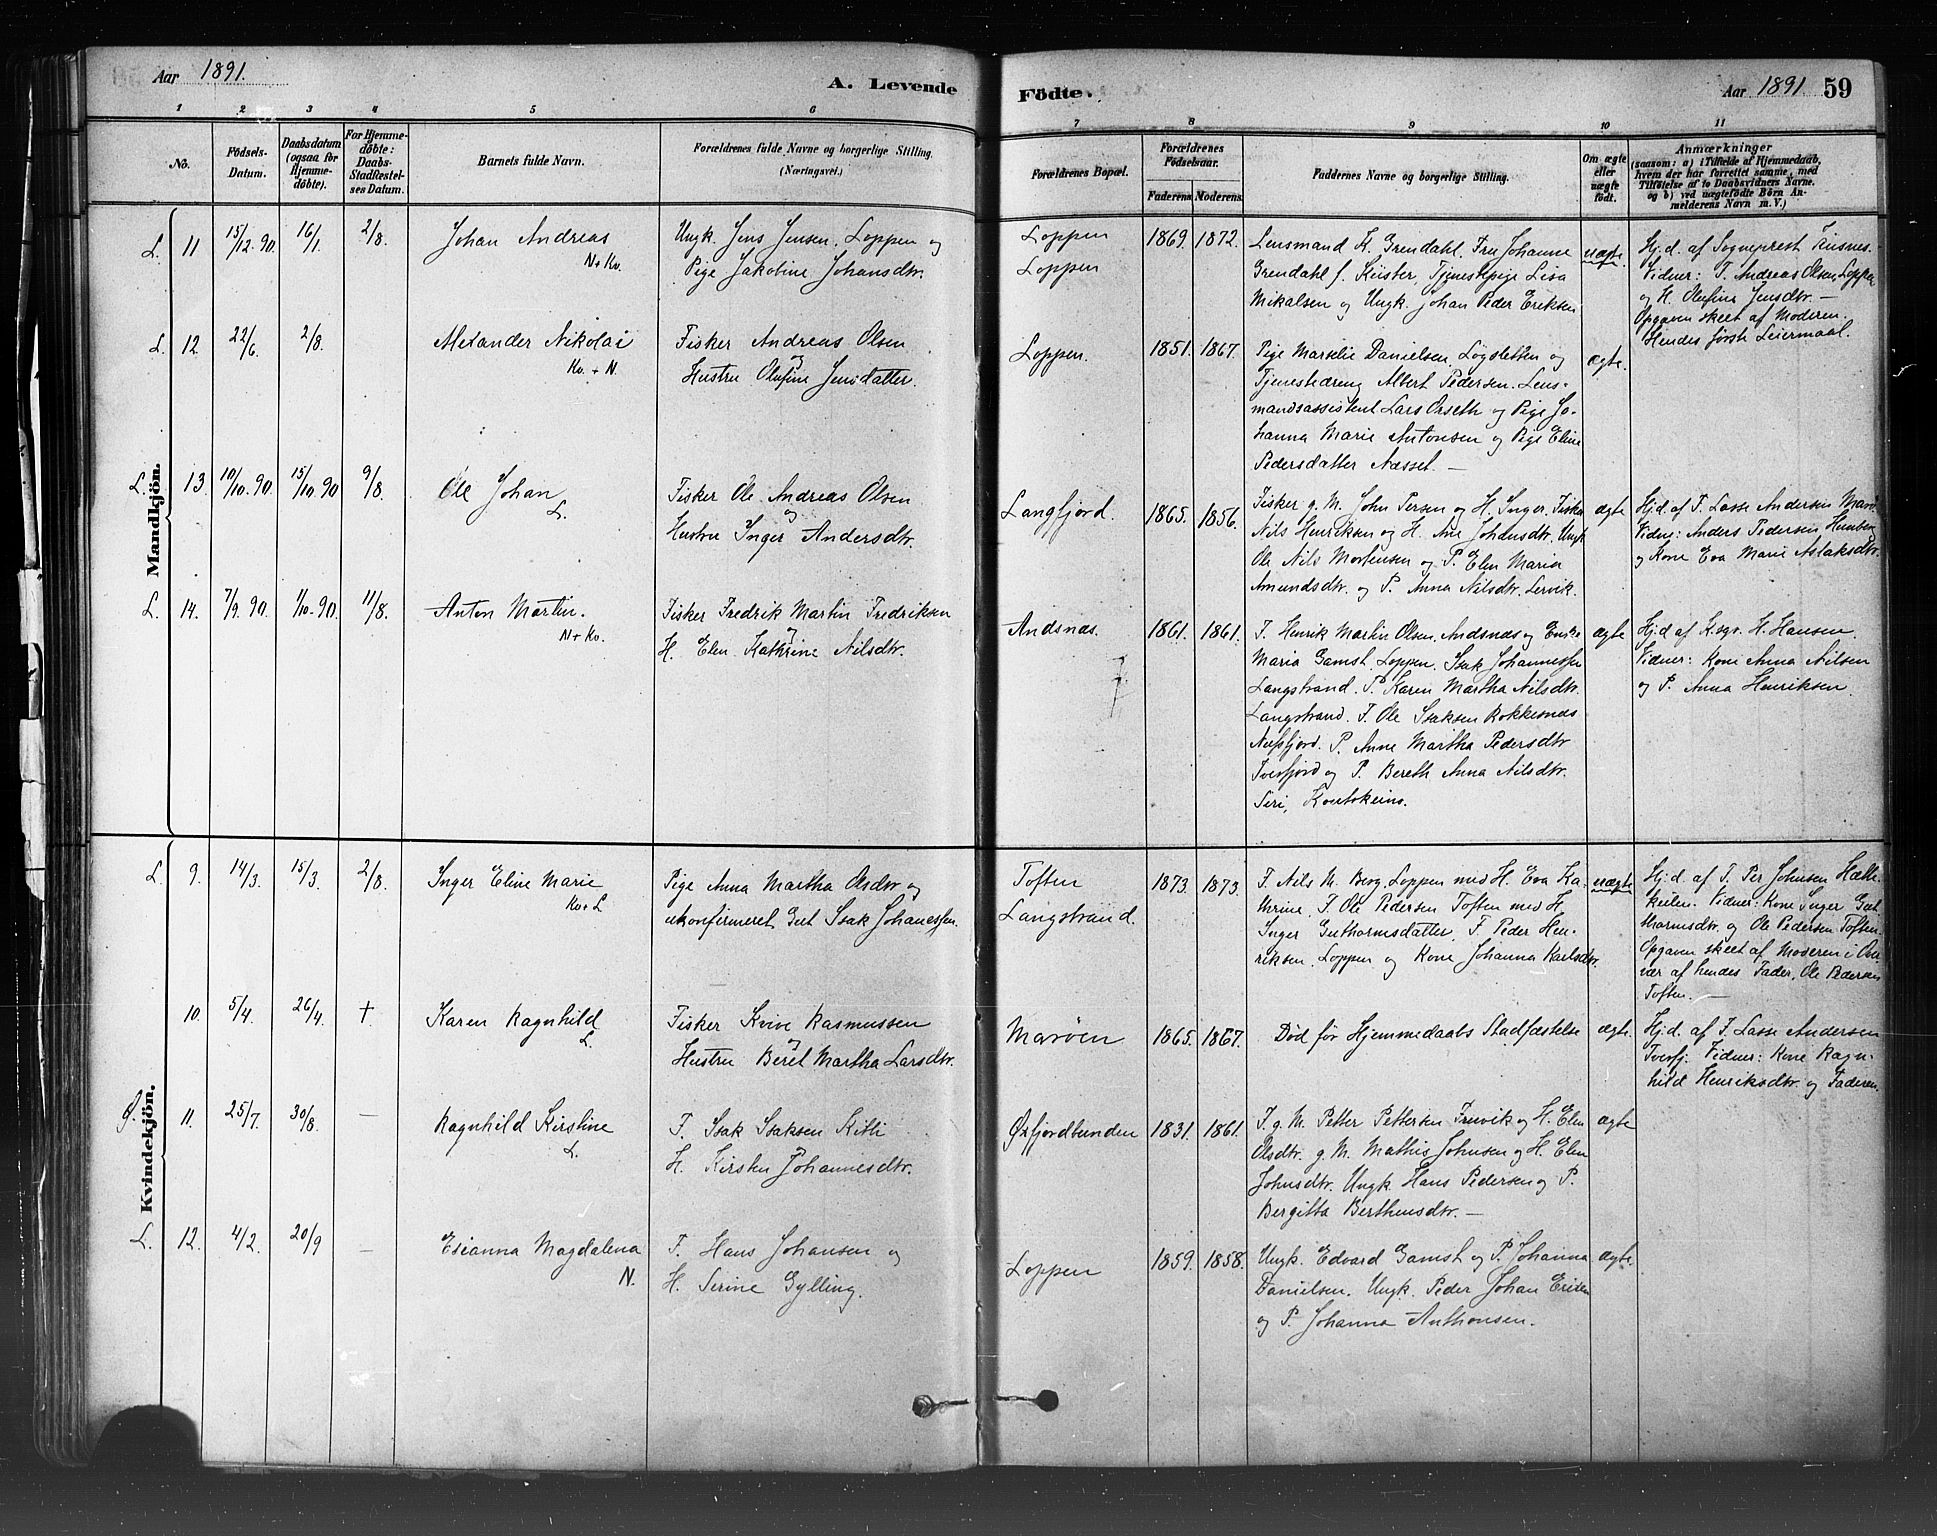 Aar 1891.
A. Levende
1 2 3 4 5 6
No.
Födsels-Datum.
Daabsdatum (ogsaa for Hjemmedöbte).
For Hjemmedöbte: Daabs-Stadfæstelses Datum.
Barnets fulde Navn.
Forældrenes fulde Navne og borgerlige Stilling. (Næringsvei.)
Mandkjön.
L. 11 15/12.90. 16/1. 2/8. Johan Andreas
N+Kv.
Ungk. Jens Jensen, Loppen og
Pige Jakobine Johansdtr.
L. 12. 22/6. 2/8. Alexander Nikolai
Kv. + N.
Fisker Andreas Olsen
og
Hustru Olufine Jensdatter.
L. 13. 10/10.90. 15/10.90 9/8. Ole Johan
L.
Fisker Ole Andreas Olsen
og
Hustru Inger Andersdtr.
L. 14. 7/9.90. 1/10.90. 11/8. Anton Martin.
N+Kv.
Fisker Fredrik Martin Fredriksen
og
H. Elen Kathrine Nilsdtr.
Kvindekjön.
L. 9. 14/3. 15/3. 2/8. Inger Eline Marie
Kv+L
Pige Anna Martha Olsdtr og
ukonfirmeret Gut Isak Johanessen.
10. 5/4. 26/4. †. Karen Ragnhild
L.
Fisker Kvive Rasmussen
og
Hustru Beret Martha Larsdtr.
Ø. 11. 25/7. 30/8. — Ragnhild Kirstine
L.
F. Isak Isaksen Kitti
og
H. Kirsten Johannesdtr.
L. 12. 4/2. 20/9 — Esianna Magdalena
N.
F. Hans Johansen og
H. Serine Gylling.
Födte.
Aar 1891 59
7 8 9 10 11
Forældrenes Bopæl.
Forældrenes Födselsaar.
Faderens. Moderens.
Faddernes Navne og borgerlige Stilling.
Om ægte eller uægte födt.
Anmærkninger
(saasom: a) i Tilfælde af Hjemmedaab, hvem der har forrettet samme, med Tilföielse af to Daabsvidners Navne, og b) ved uægtefödte Börn Anmelderens Navn m. V.)
Loppen
Loppen
1869. 1872.
Lensmand K. Grendahl, Fru Johanne
Grendahl f. Keister, Tjenestepige Lisa
Mikalsen og Ungk. Johan Peder Eriksen
uægte.
Hj.d. af Sogneprest
Vidner: F. Andreas Olsen, Loppen
og H. Olufine Jensdtr. —
Opgaven skeet af Moderen.
Hendes første Leiermaal.
Loppen.
1851. 1867.
Pige Marselie Danielsen, Løgsletten og
Tjenestedreng Albert Pedersen. Lens-
mandsassistent Lars Orseth og Pige Jo-
hanna Marie Antonsen og Pige Eline
Pedersdatter Næsset. —
ægte.
Langfjord.
1865. 1856.
Fisker g. M. John Persen og H. Inger. Fisker
Nils Henriksen og H. Ane Johnsdtr. Ungk
Ole Nils Mortensen og P. Elen Maria
Amundsdtr. og P. Anna Nilsdtr. Lervik.
ægte
Hj.d. af F. Lasse Andersen Marø
Vidner: Anders Pedersen
og Kone Eva Marie Aslaksdtr.
Andsnæs.
1861. 1861.
F. Henrik Martin Olsen, Andsnæs og Enke
Maria Gamst, Loppen. Isak Johannessen
Langstrand. P. Karen Martha Nilsdtr.
Langstrand. F. Ole Isaksen Bokkesnæs
Nufsfjord. P. Anne Martha Pedersdtr
Tverfjord og P. Bereth Anna Nilsdtr.
Siri, Koutokeino.
ægte
Hj.d af K.sgr. H. Hansen.
Vidner: Kone Anna Nilsen
og P. Anna Henriksen.
Toften
Langstrand.
1873. 1873.
F. Nils M. Berg, Loppen med H. Eva Ka-
thrine. F. Ole Pedersen Toften med H.
Inger Guthormsdatter, F. Peder Hen-
riksen, Loppen og Kone Johanna Karlsdtr.
uægte
Hj.d. af F. Per Johnsen
Vidner: Kone Inger Gut-
hormsdtr. og Ole Pedersen Toften.
Opgaven skeet af Moderen i
vær af hendes Fader, Ole Pedersen
Toften. —
Marøen
1865. 1867.
Død før Hjemmedaabs Stadfæstelse
ægte.
Hj.d. af F. Lasse Andersen
Tverfj. Vidner: Kone Ragn-
hild Henriksdtr. og Faderen.
Øxfjordbunden
1831. 1861.
F. g. M. Petter Pettersen Truvik og H. Elen
Olsdtr. g. M. Mathis Johnsen og H. Elen
Johnsdtr. Ungk. Hans Pedersen og P.
Bergitta Berthensdtr. —
ægte
Loppen
1859. 1858.
Ungk. Edvard Gamst og P. Johanna
Danielsen. Ungk. Peder Johan Eriksen
og P. Johanna Anthonsen.
ægte.